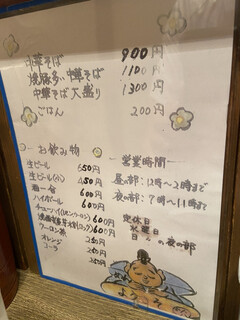 中華そば 900円
焼豚多め中華そば 1100円
中華そば大盛り 1300円
ごはん 200円
お飲み物
生ビール 650円
生ビール(小) 450円
酒一合 600円
ハイボール 600円
チューハイ(レモン・ウーロン) 600円
600円
ウーロン茶 250円
オレンジ 250円
コーラ 250円
営業時間
昼の部:12時〜2時まで
夜の部:7時〜11時
定休日
水曜日
の夜の部
ようこそ